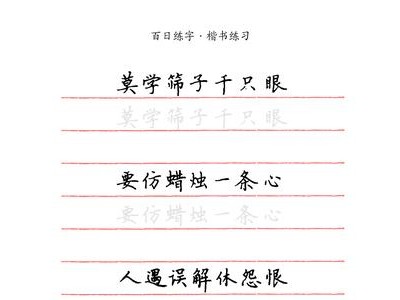 百日练字·楷书练习
莫学筛子千只眼
莫学筛子千只眼
要仿蜡烛一条心
要仿蜡烛一条心
人遇误解休怨恨